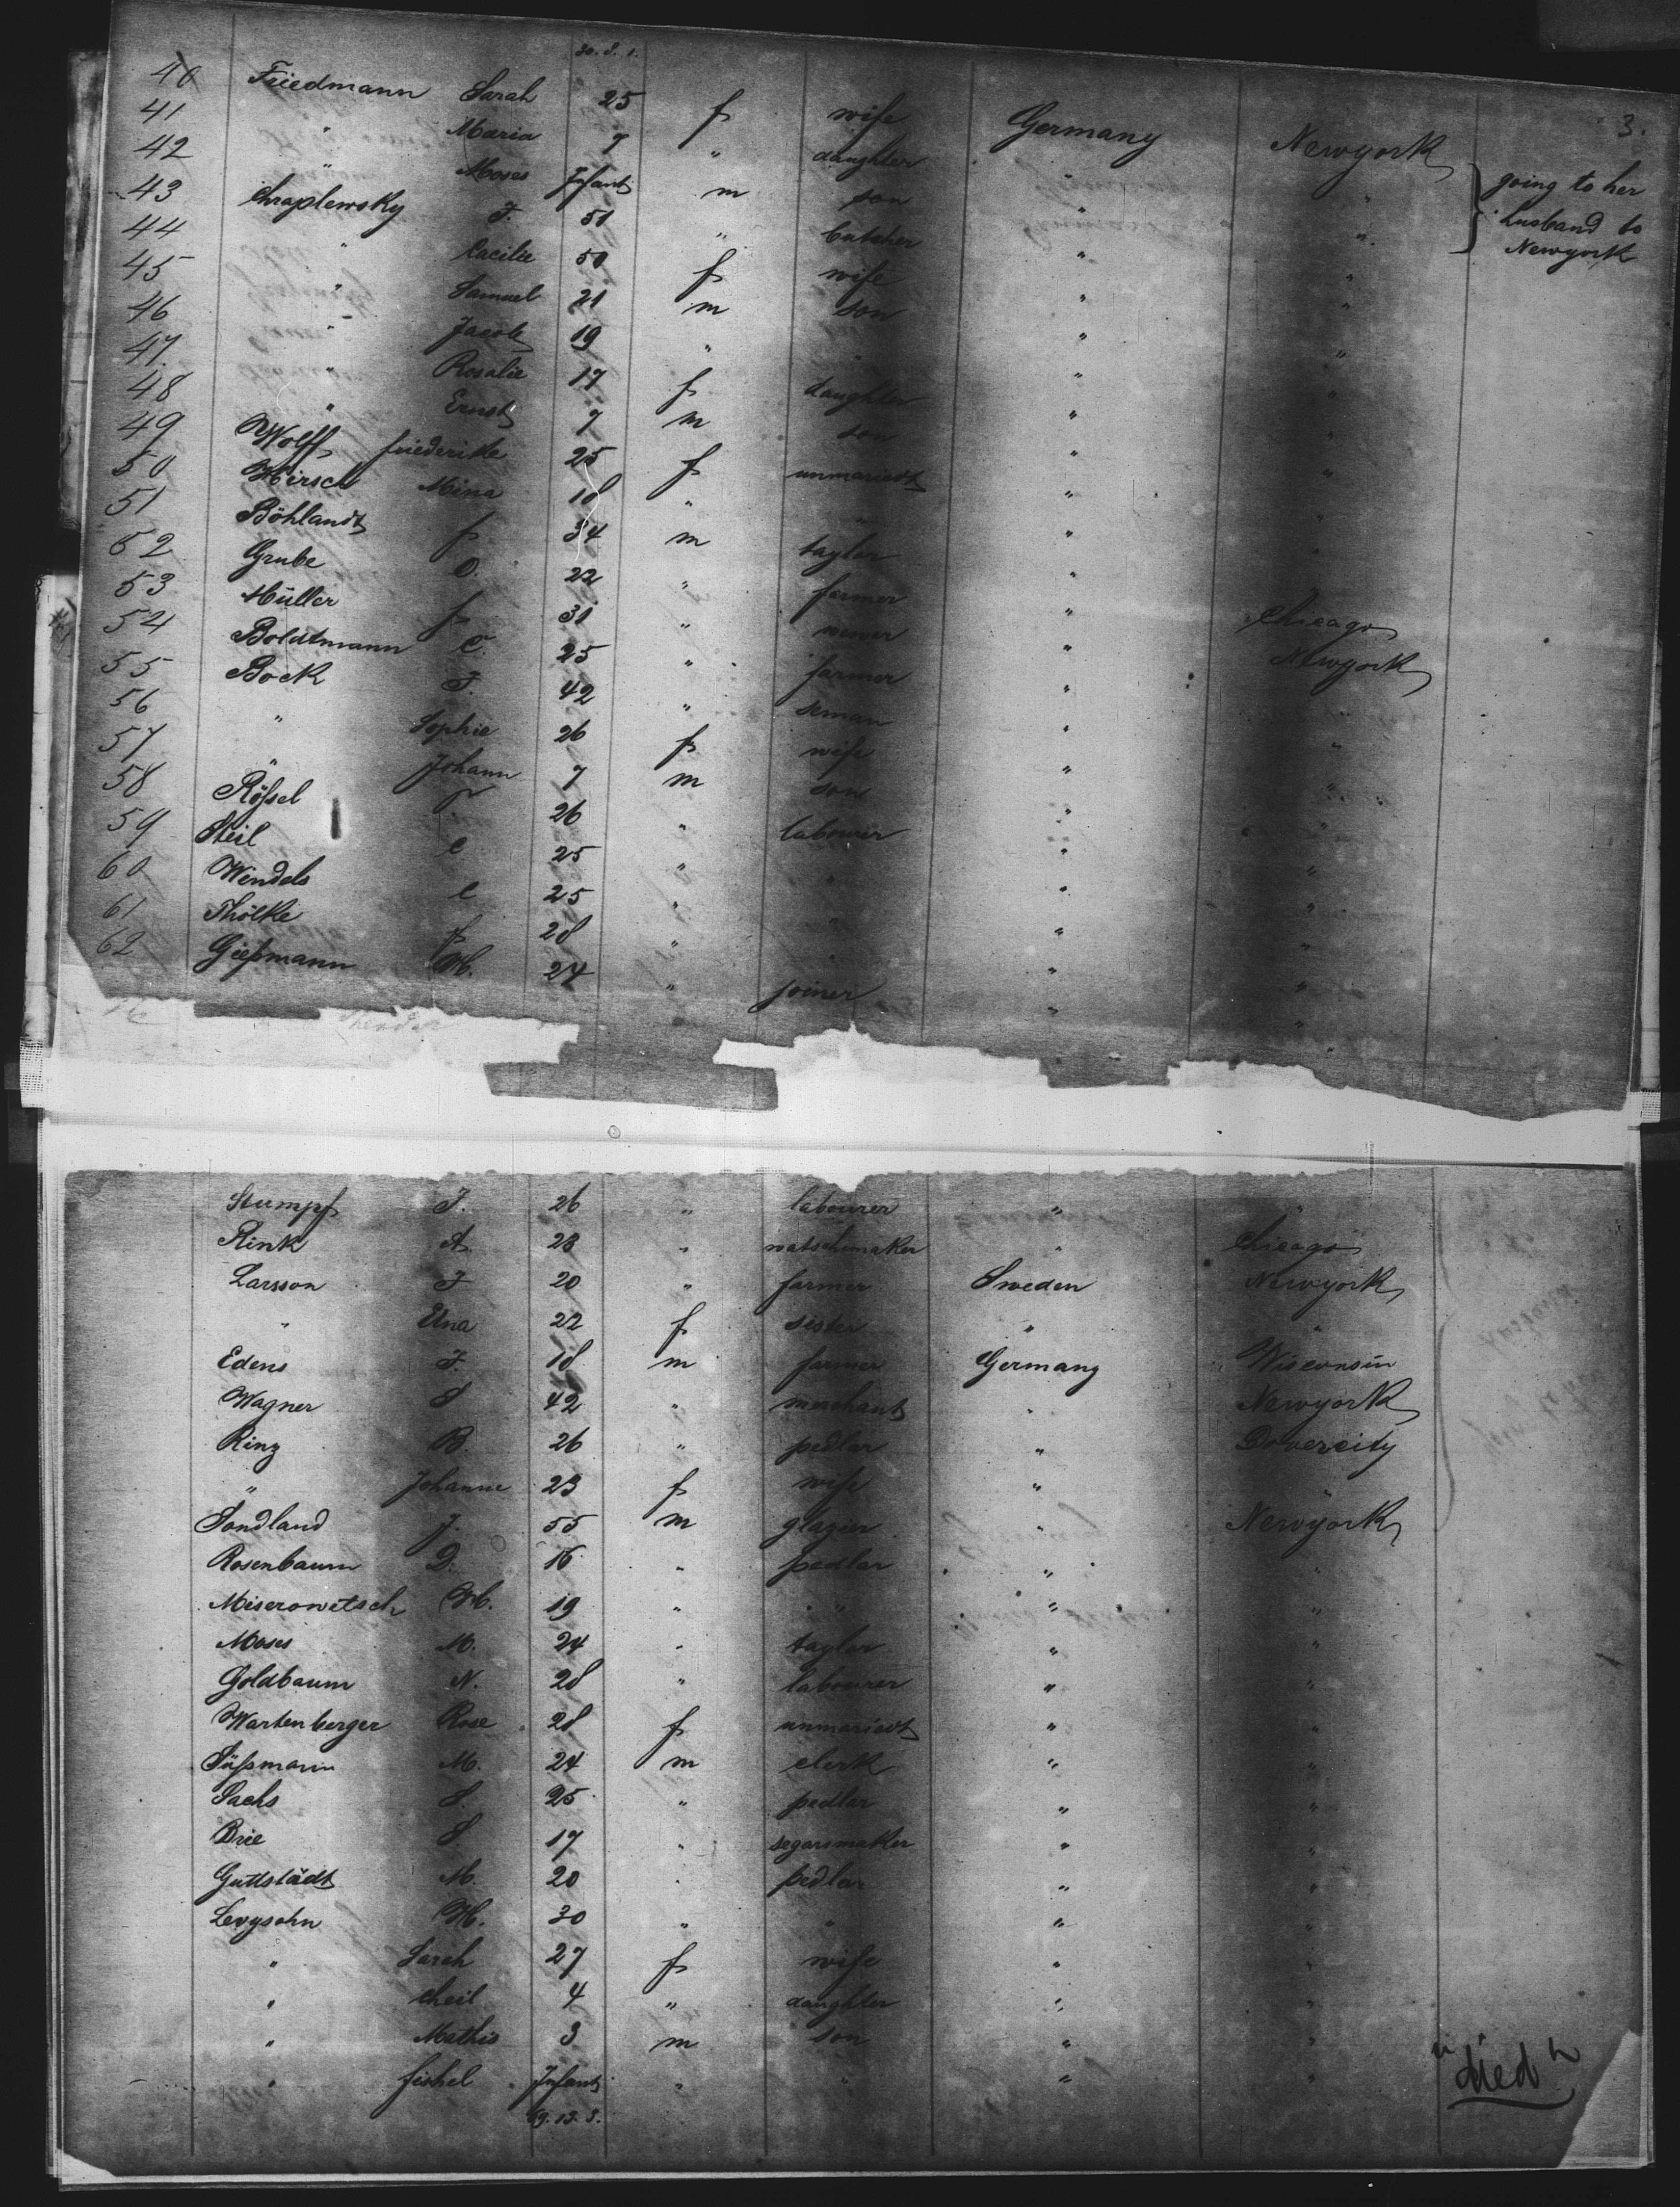 30. 2. 1.
3.
40 Friedmann Sarah 25 f wife Germany Newyork
41 " Maria 7 " daughter " " going to her
42 " Moses Infant m son " " husband to Newyork
43 Chraplewsky J. 51 " butcher " "
44 " Cacilie 50 f wife " "
45 " Samuel 21 m son " "
46 " Jacob 19 " " " "
47 " Rosalie 17 f daughter " "
48 " Ernst 7 m son " "
49 Wolff friederike 25 f unmariedt " "
50 Hirsch Mina 18 " " " "
51 Böhlandt f 34 m taylor " "
52 Grube O. 22 " farmer " Chicago
53 Müller f. 31 " " Newyork
54 Boldtmann C. 25 " farmer " "
55 Bock J. 42 " seman " "
56 " Sophie 26 f wife " "
57 " Johann 7 m son " "
58 Rößel T. 26 " labourer " "
59 Steil C 25 " " " "
60 Windels C 25 " " " "
61 Thölke f 28 " " " "
62 Gießmann H. 24 " joiner " "
Stumpf J. 26 " labourer " "
Rink A 28 " watschmaker " Chicago
Larsson J 20 " farmer Sweden Newyork
" Elna 22 f sister " "
Edens J. 18 m farmer Germany Wisconsin
Wagner S 42 " merchant " Newyork
Rinz B. 26 " pedlar " Dovercity
" Johanne 23 f wife " "
Sondland J. 55 m glazier " Newyork
Rosenbaum D. 16 " pedlar " "
Miserowetsch H. 19 " " " "
Moses M. 24 " taylor " "
Goldbaum N. 28 " labourer " "
Wartenberger Rose 28 f unmariedt " "
Süßmann M. 24 m clerk " "
Sachs S. 25 " pedlar " "
Brie S 17 " segarsmaker " "
Guttstädt M. 20 " pedlar " "
Levysohn H. 30 " " " "
" Sarah 27 f wife " "
" Cheil 4 " daughter " "
" Mathis 3 m son " "
" fishel Infant " " " " "died"
69. 13. 3.